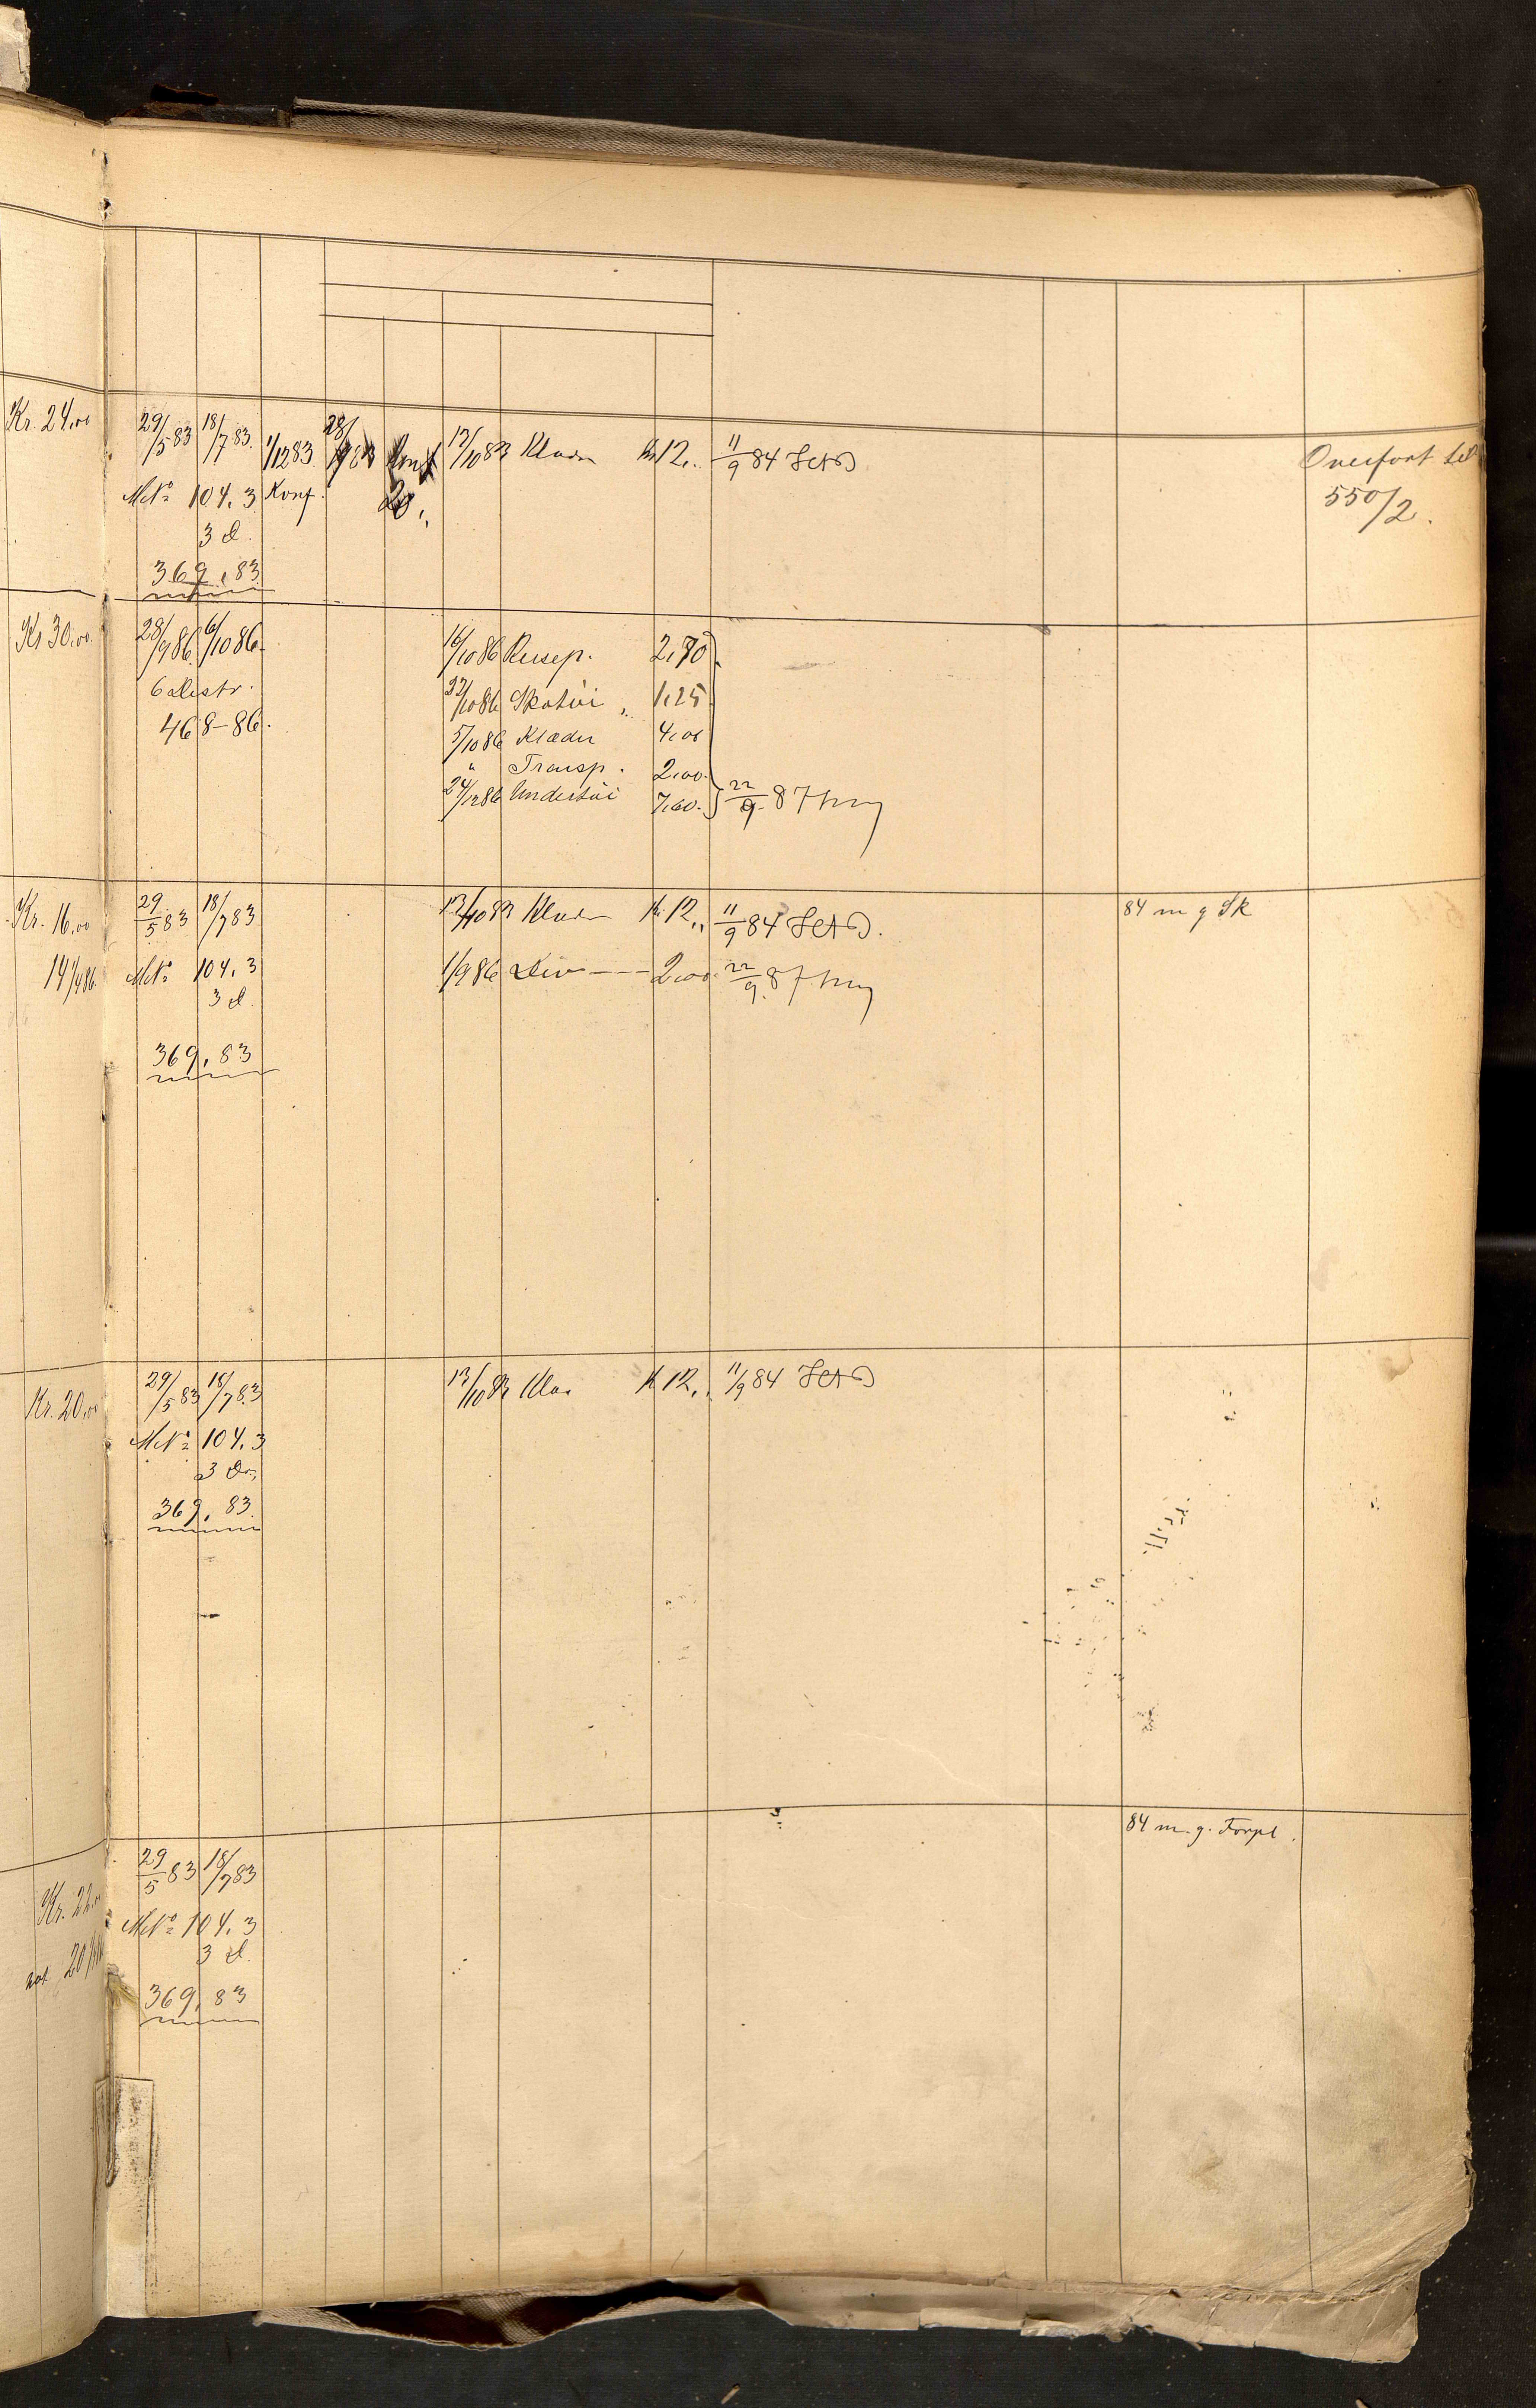 Kr. 24,00
29/5 83 18/7 83 1/12 83 28/ 13/10 83 Klæder Kr 12,, 11/9 84
M No 104. 3 Konf. 20,,
3 d.
369, 83
Overført til
550/2.
Kr 30,00
28/9 86 6/10 86 16/10 86 Resep. 2,70
6 Distr. 22/10 86 Skotøi „ 1,25
468-86. 5/10 86 Klæder 4,00
" Transp. 2,00
24/12 86 Undertøi 7,60 22/9 87
Kr. 16,00
29/5 83 18/7 83 13/10 83 Klæder Kr 12,, 11/9 84
84 m g Sk
14/4 86
M No 104. 3 1/9 86 Div 2,00 22/9 87
3 d.
369, 83
Kr. 20,00
29/5 83 18/7 83 13/10 83 Klæ Kr 12,, 11/9 84
M No 104. 3
3 D
369, 83
84 m. g. Forpl.
Kr. 22,00
29/5 83 18/7 83
M No 104. 3
3 d.
369, 83